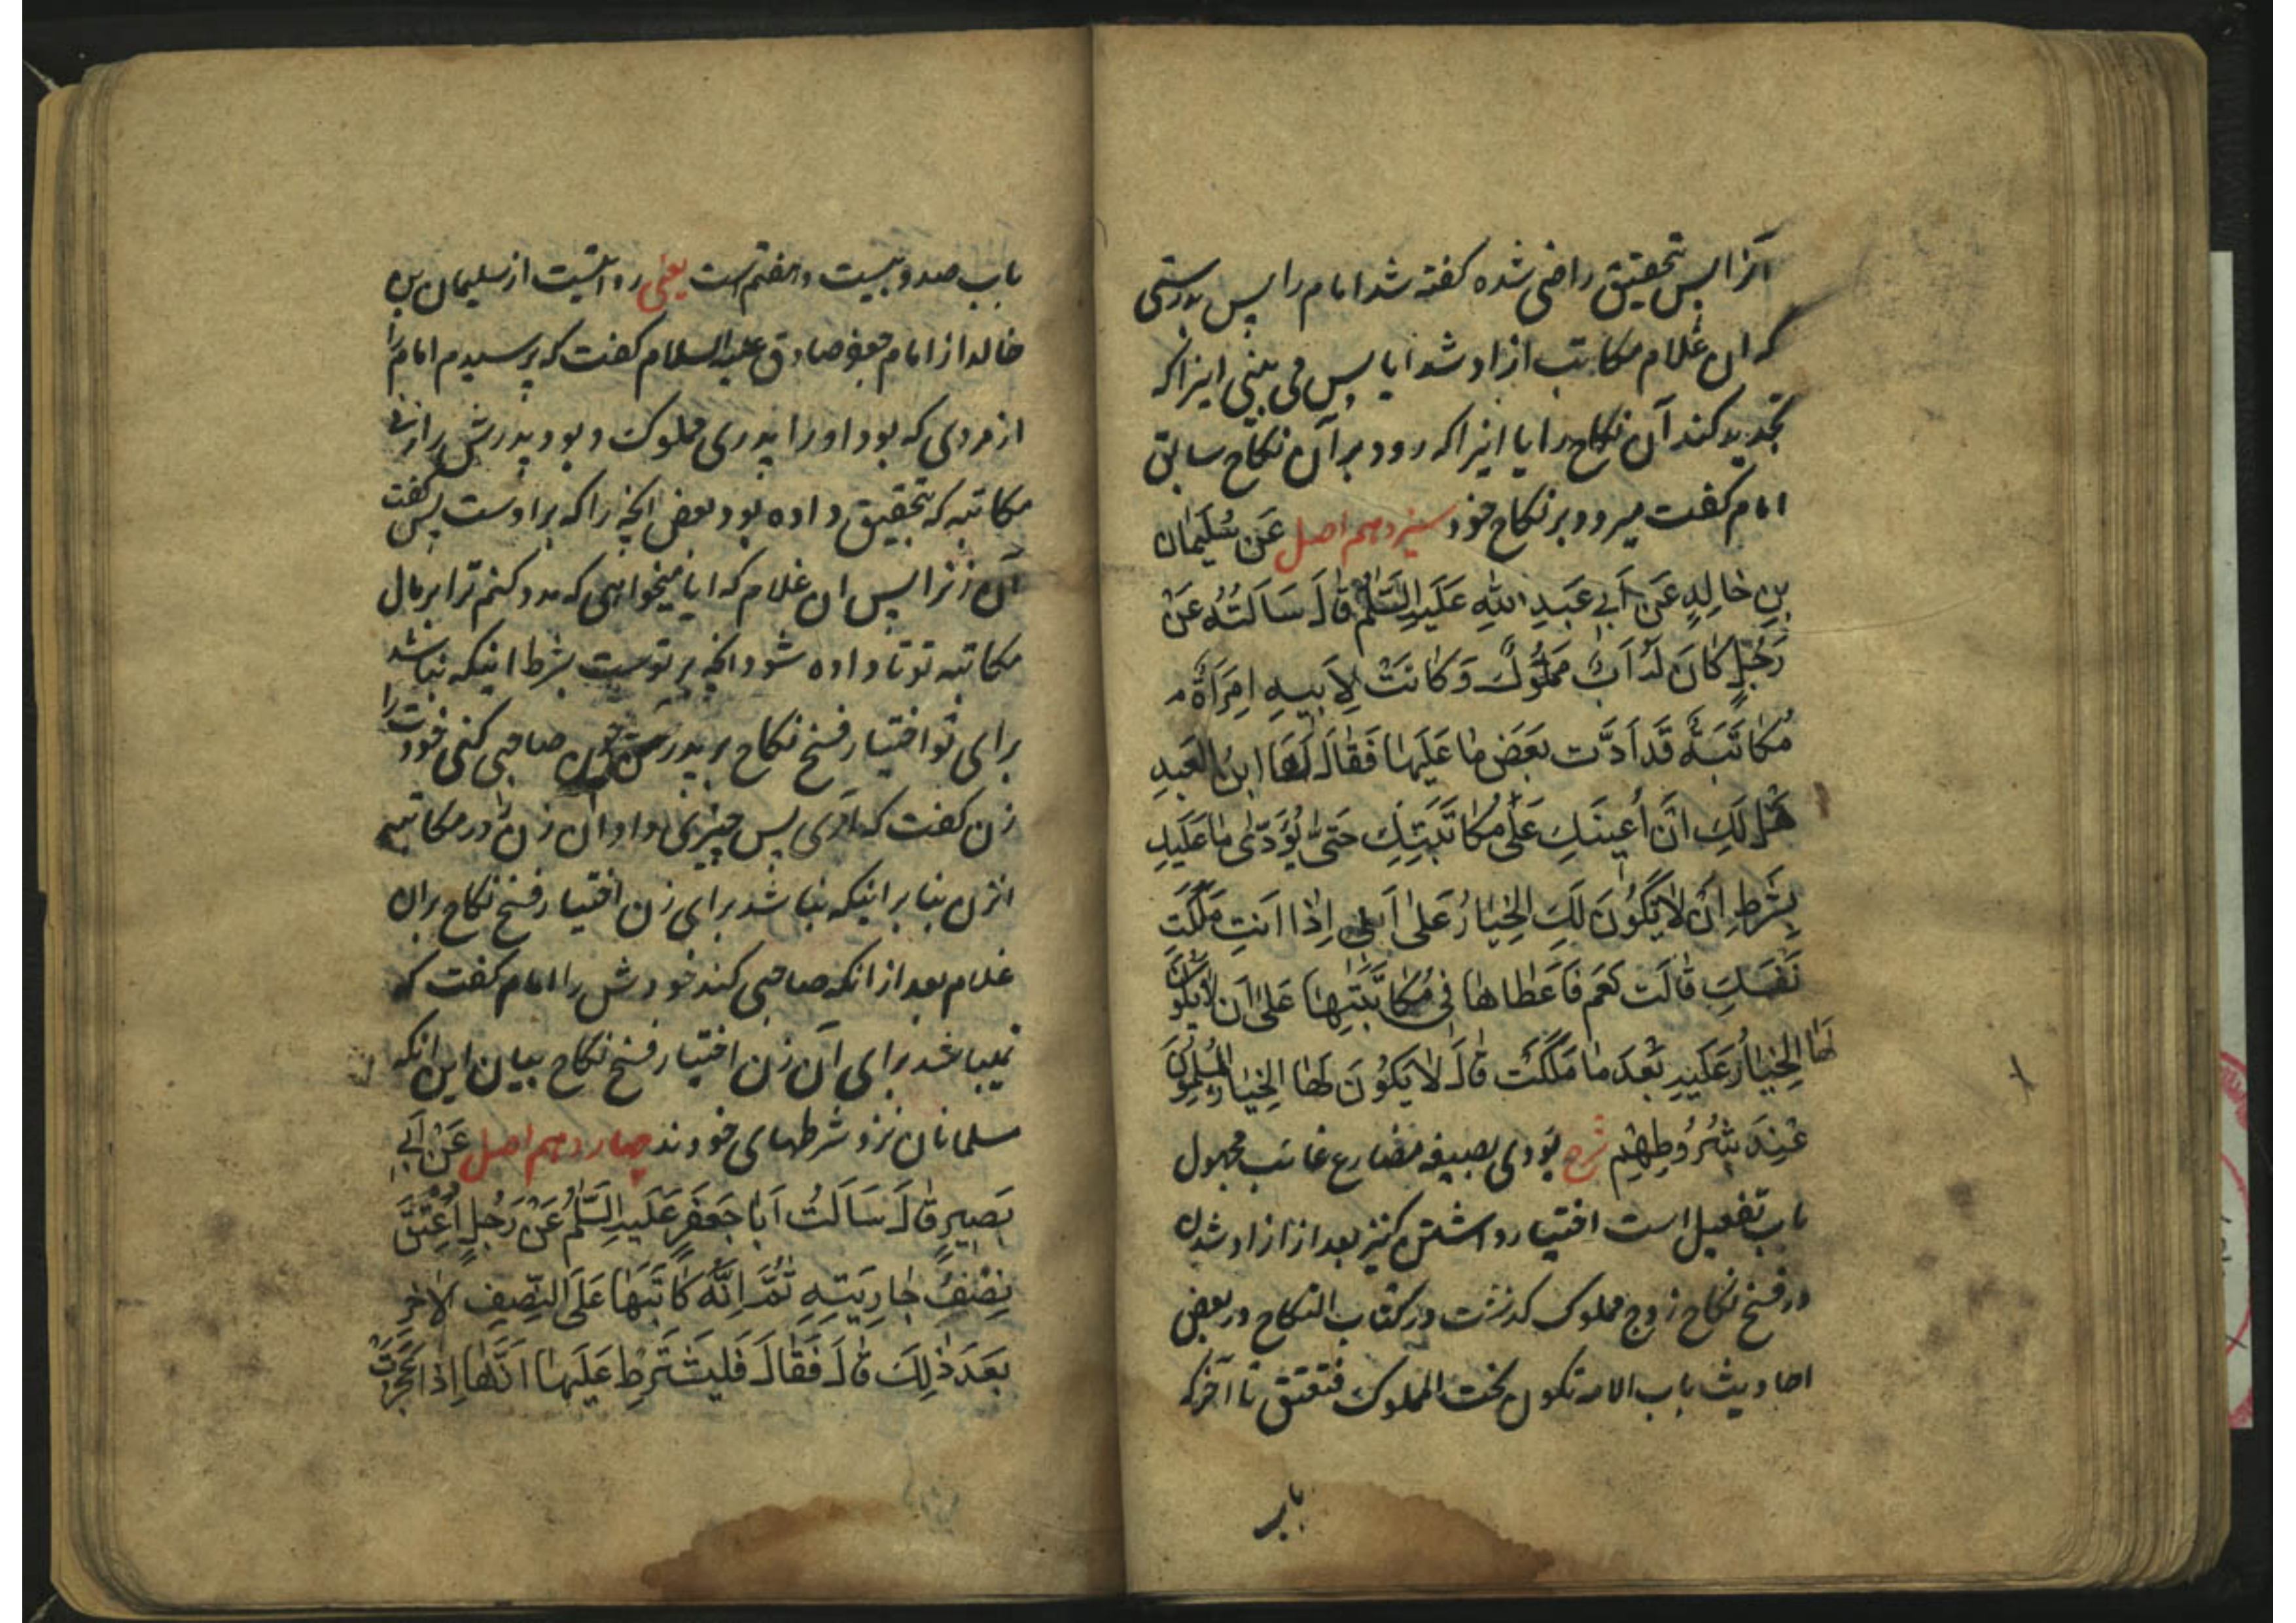 آنرا پس بتحقیق راضی شده گفته شد امام را پس بدرستی
که ان غلام مکاتب ازاد شد ایا پس می بینی اینرا که
تجدید کند آن نکاح را یا اینرا که رود بر آن نکاح سابق
امام گفت میرود بر نکاح خود سیزدهم اصل عَن سُلَیمان
بنِ خالِدٍ عَن اَبی عَبدِ اللهِ عَلَیهِ السَّلٰمُ قالَ سَاَلتُهُ عَنْ
رَجُلٍ کانَ لَهُ اَبٌ مَملُوکٌ وَ کانَتْ لِاَبیهِ امِرَاَةٌ
مُکاتَبَةٌ قَد اَدَّت بَعَضَ ما عَلَیها فَقالَ لَها ابنُ العَبدِ
هَل لَکِ اَن اُعینَکِ عَلٰی مُکاتَبَتِکِ حَتّی یُؤَدّٰی ما عَلَیکِ
بِشَرطِ اَن لا یَکُونَ لَکِ الخِیارُ عَلٰی اَبی اِذا اَنتِ مَلَکتِ
نَفسَکِ قالَت نَعَم فَاَعطاها فی مُکاتَبَتِها عَلٰی اَن لا یکونَ
لَها الخِیارُ عَلَیهِ بَعدَ ما مَلَکَت قالَ لا یَکُونَ لَها الخِیارُ المُسلِمُونَ
عِندَ شُرُوطِهِم شرح یؤدی بصیغه مضارع غائب مجهول
باب تفعیل است اختیار داشتن کنیز بعد از ازاد شدن
در فسخ نکاح زوج مملوک گذشت در کتاب النکاح در بعض
احادیث باب الامة تکون تحت المملوک فتعتق تا آخر که
باب
باب صد و بیست و هفتم است یعنی روایتست از سلیمان بن
خالد از امام جعفر صادق علیه السلام گفت که پرسیدم امام را
از مردی که بود او را پدری مملوک و بود پدرش را زنی
مکاتبه که بتحقیق داده بود بعض انچه را که بر اوست پس گفت
آن زنرا پسر ان غلام که ایا میخواهی که مدد کنم ترا بر مال
مکاتبه تو تا داده شود انچه بر توست بشرط اینکه نباشد
برای تو اختیار فسخ نکاح بر پدرم چون صاحبی کنی خودت را
زن گفت که آری پس چیزی داد آن زن را در مکاتبه
انزن بنا بر اینکه نباشد برای زن اختیار فسخ نکاح بران
غلام بعد از انکه صاحبی کند خودش را امام گفت که
نمیباشد برای آن زن اختیار فسخ نکاح بیان این انکه
مسلمانان نزد شرطهای خودند چهاردهم اصل عَن اَبی
بَصیرٍ قالَ سَاَلتُ اَبا جَعفَرٍ عَلَیهِ السَّلٰمُ عَنْ رَجُلٍ اَعتَقَ
نِصْفَ جارِیَتِهِ ثُمَّ اِنَّهُ کاتَبَها عَلَی النِّصفِ الاٰخَرِ
بَعدَ ذٰلِکَ قالَ فَقالَ فَلیَشتَرِط عَلَیها اَنَّها اِذا عَجَزَت